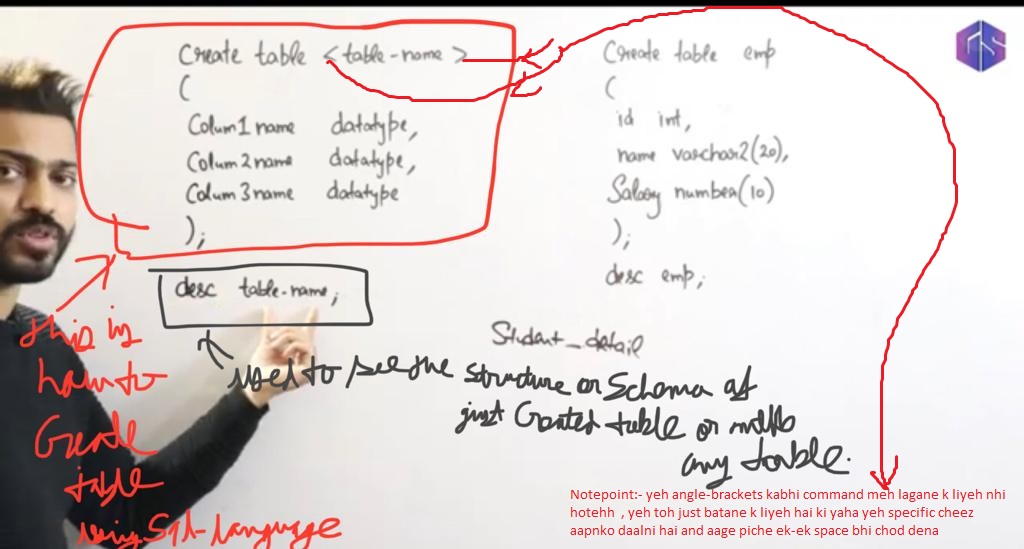 Create table <table-name>
(
Colum1name datatype,
Colum2name datatype,
Colum3name datatype
);
desc table-name;
Create table emp
(
id int,
name varchar2(20),
Salary number(10)
);
desc emp;
Student_detail
this is
how to
Create
table
using Sql-Language
used to see the structure or Schema of
just Created table or
any table.
Notepoint:- yeh angle-brackets kabhi command meh lagane k liyeh nhi
hotehh , yeh toh just batane k liyeh hai ki yaha yeh specific cheez
aapnko daalni hai and aage piche ek-ek space bhi chod dena